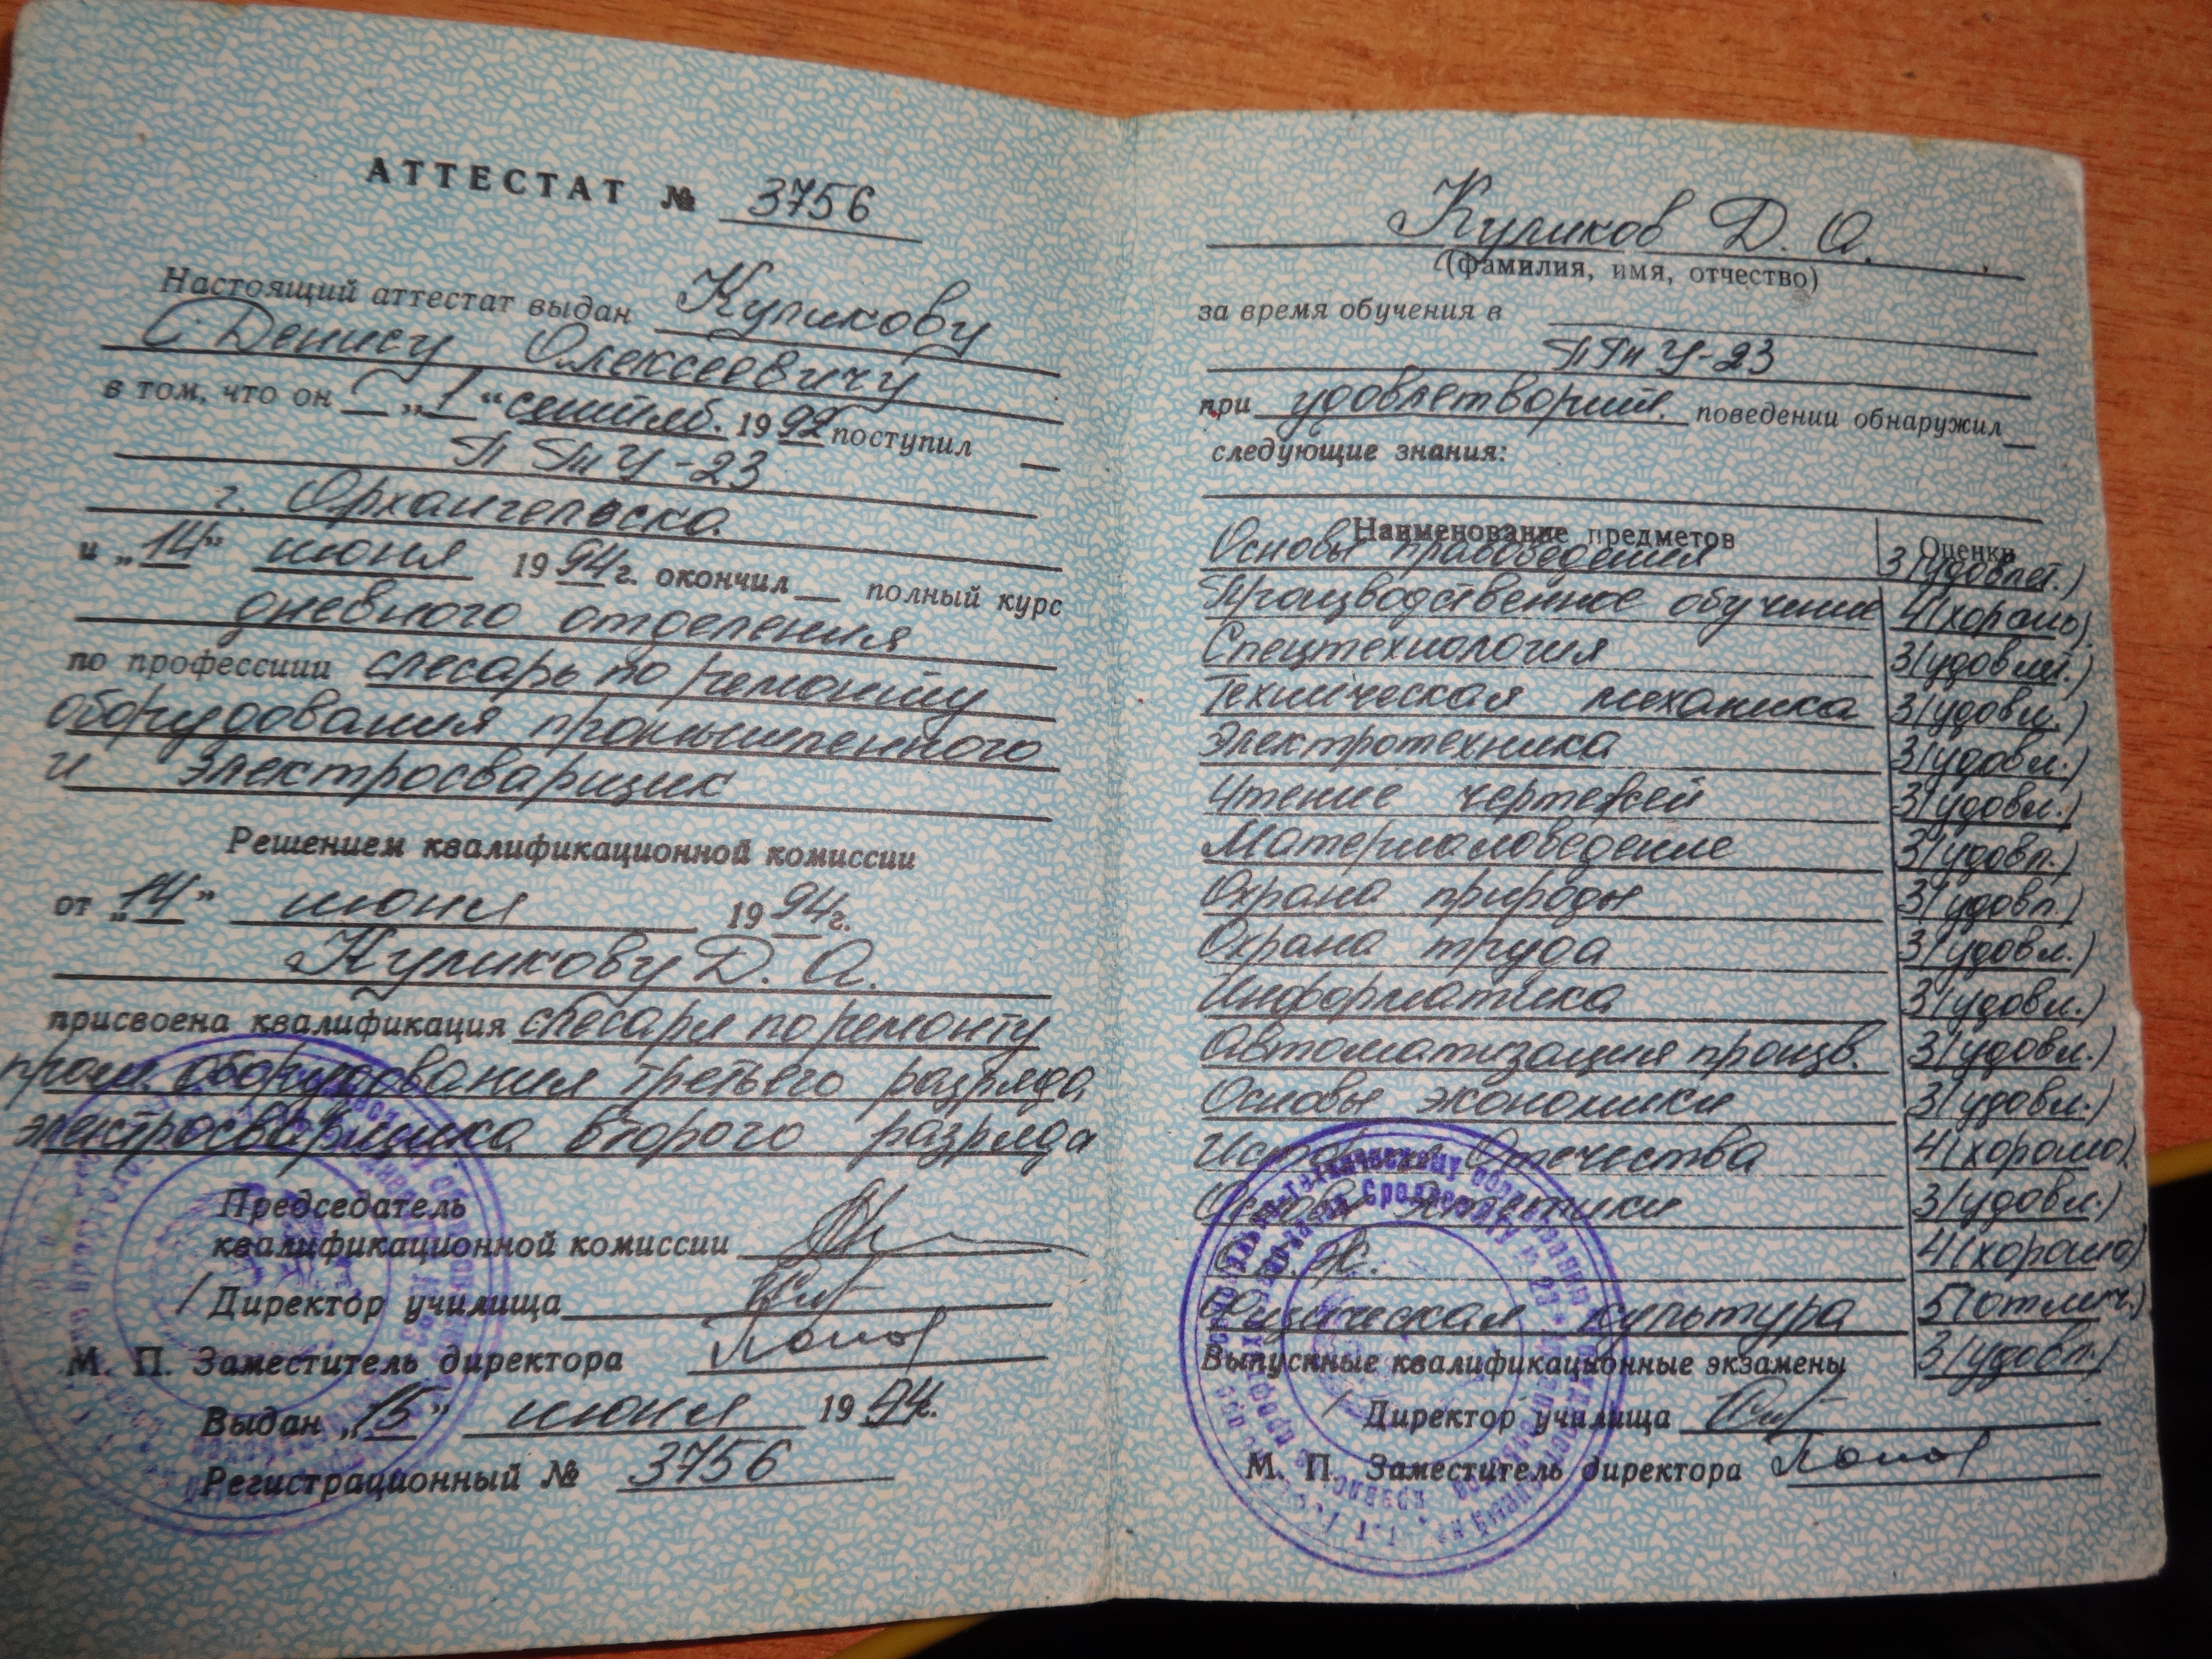 АТТЕСТАТ № 3756
Настоящий аттестат выдан Куликову
Денису Алексеевичу
в том, что он „1“ сентяб. 1992 поступил
ПТУ-23
г. Архангельска
и „14“ июня 1994 г. окончил полный курс
дневного отделения
по профессиии слесарь по ремонту
оборудования промышленного
и электросварщик
Решением квалификационной комиссии
от „14“ июня 1994 г.
Куликову Д. А.
присвоена квалификация слесаря по ремонту
пром. оборудования третьего разряда
электросварщика второго разряда
Председатель
квалификационной комиссии
Директор училища
М. П. Заместитель директора
Выдан „15“ июня 1994 г.
Регистрационный № 3756
Куликов Д. А.
(фамилия, имя, отчество)
за время обучения в
ПТУ-23
при удовлетворит. поведении обнаружил
следующие знания:
Наименование предметов Оценки
Основы правоведения 3 (удовлет.)
Производственное обучение 4 (хорошо)
Спецтехнология 3 (удовлет.)
Техническая механика 3 (удовл.)
Электротехника 3 (удовл.)
Чтение чертежей 3 (удовл.)
Материаловедение 3 (удовл.)
Охрана природы 3 (удовл.)
Охрана труда 3 (удовл.)
Информатика 3 (удовл.)
Автоматизация произв. 3 (удовл.)
Основы экономики 3 (удовл.)
История Отечества 4 (хорошо)
Основы 3 (удовл.)
4 (хорошо)
Физическая культура 5 (отлич.)
Выпускные квалификационные экзамены 3 (удовл.)
Директор училища
М. П. Заместитель директора